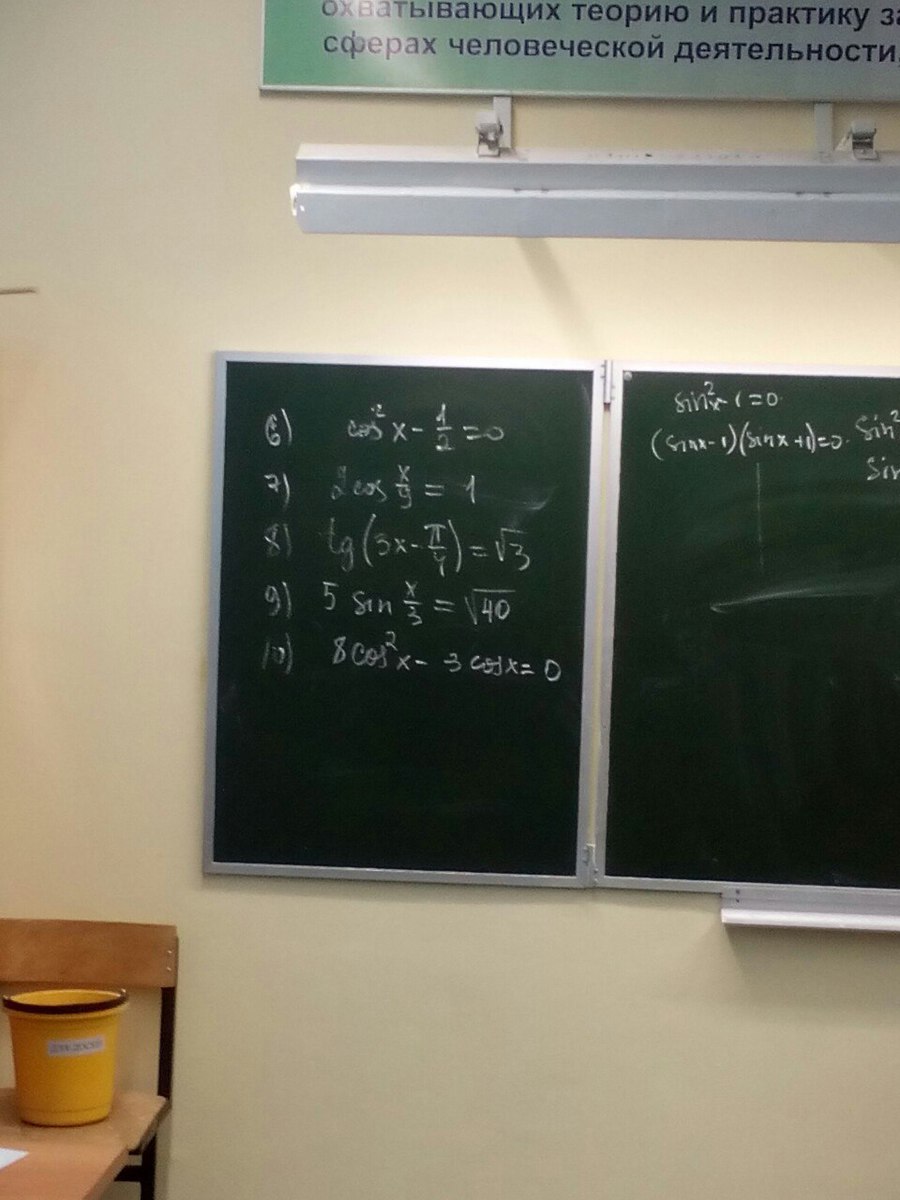 охватывающих теорию и практику за
сферах человеческой деятельности,
6) cos² x - 1/2 = 0
7) 2cos x/9 = 1
8) tg(3x - π/4) = √3
9) 5 sin x/3 = √40
10) 8cos² x - 3 cosx = 0
sin²x - 1 = 0
(sinx-1)(sinx+1)=0.
sin²
sin